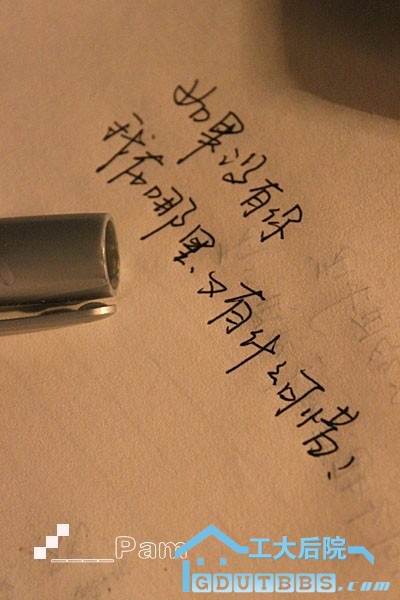 如果没有你
我在哪里、又有什么可惜!
____Pam
工大后院
GDUTBBS.com